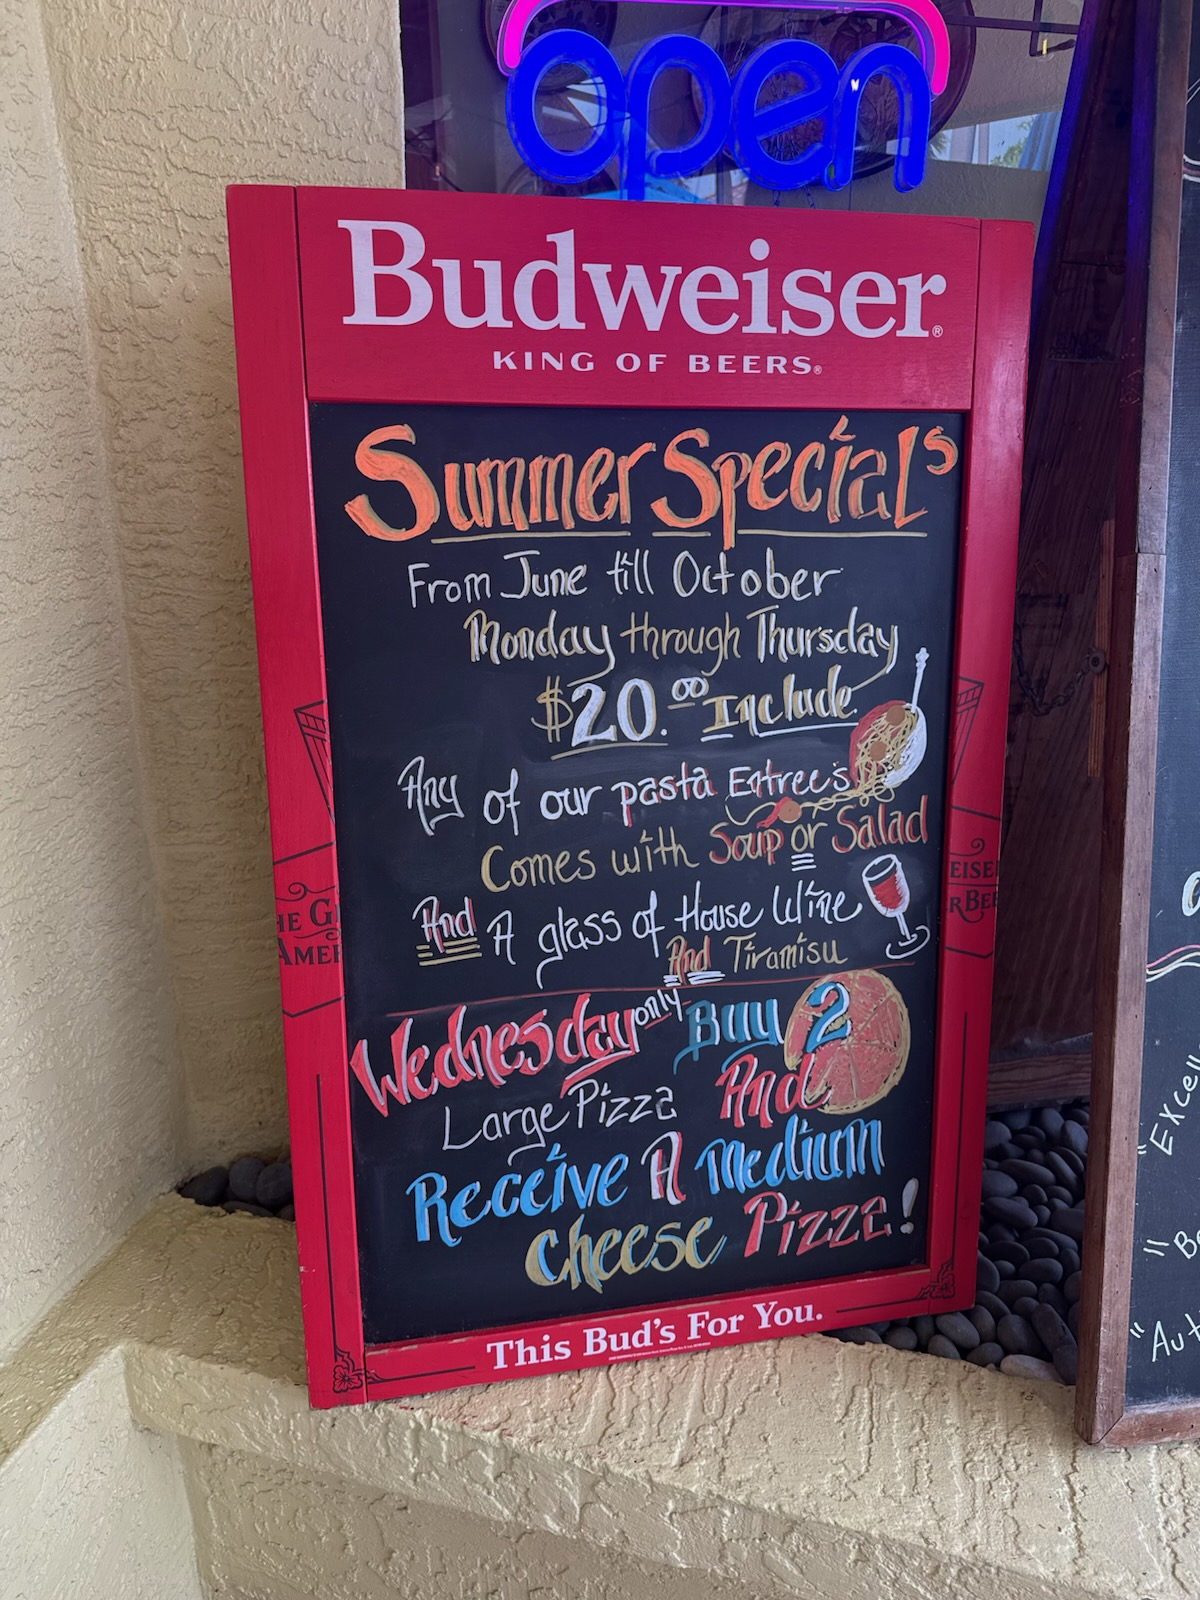 open
Budweiser®
KING OF BEERS®
Summer Specials
From June till October
Monday through Thursday
$20.00 Include
Any of our pasta Entree's
Comes with Soup or Salad
And A glass of House Wine
And Tiramisu
Wednesday only Buy 2
Large Pizza And
Receive A Medium
Cheese Pizza!
This Bud's For You.
HE G
AMER
EISE
RBEE
"Excell
"Be
"Aut